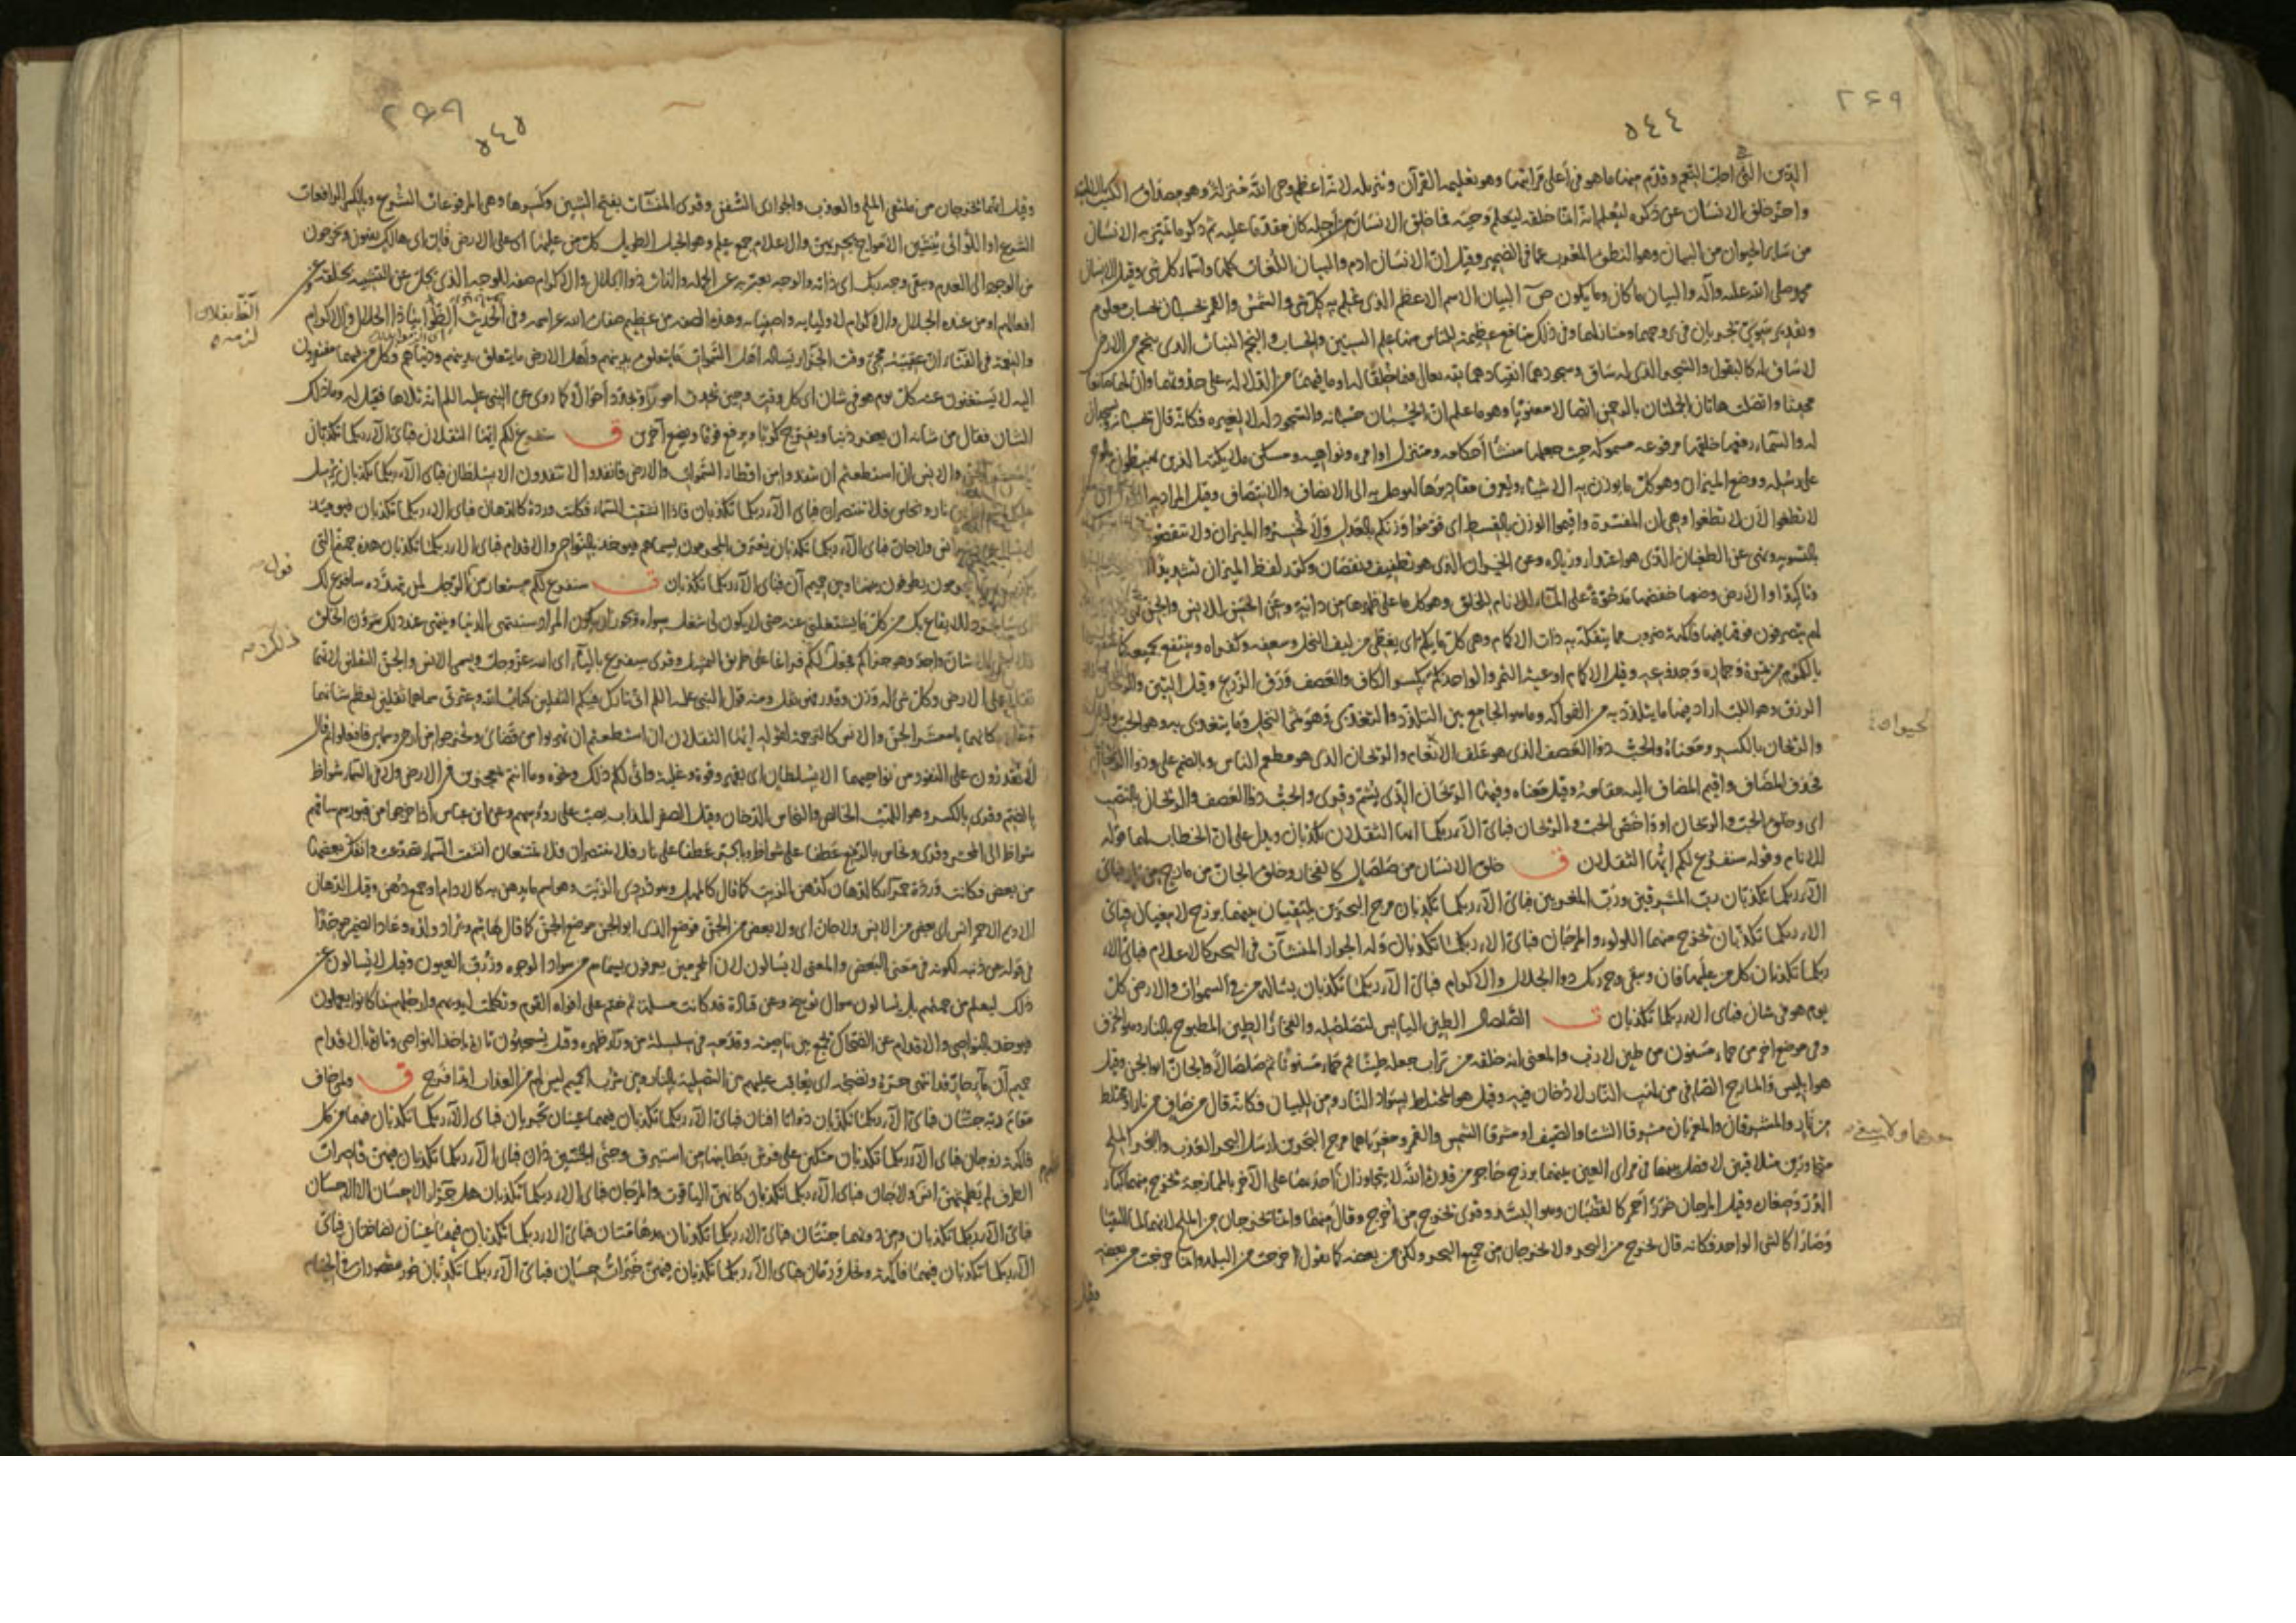 ٢٦٩
٥٤٤
الدين التي اجل النعم وقدّم منها ما هو في أعلى مراتبها وهو تعليمه القرآن وتنزيله لانه اعظم وحي الله منزلة وهو مصداق الكتب الالهية
واخّر خلق الانسان عن ذكره ليُعلم انه انما خلقه ليعلم وحيه فما خلق الانسان من اجله كان مقدّما عليه ثم ذكر ما تميّز به الانسان
من سائر الحيوان من البيان وهو النطق المعرب عما في الضمير وقيل انّ الانسان ادم والبيان اللّغات كلها واسماء كل شيء وقيل الانسان
محمد صلى الله عليه وآله والبيان ما كان وما يكون ص البيان الاسم الاعظم الذي علم به كل شيء والشمس والقمر بحسبان بحساب معلوم
وتقدير سَويّ تجريان في بروجهما ومنازلهما وفي ذلك منافع عظيمة للناس منها علم السنين والحساب والنجم النبات الذي ينجم من الارض
لا ساق له كالبقول والشجر الذي له ساق وسجودهما انقيادهما لله تعالى فيما خُلقا له وما فيهما من الدلالة على حدوثهما وانّ لهما صانعا
محدثا واتصلت هاتان الجملتان بالرحمن اتصالا معنويا وهو ما علم ان الحُسبان حسبانه والسجود له لا لغيره فكانه قال بحسبانه ويسجدان
له والسماء رفعها خلقها مرفوعة مسموكة حيث جعلها منشأ احكامه ومتنزل اوامره ونواهيه ومسكن ملائكته الذين يهبطون بالوحي
على رسله ووضع الميزان وهو كلّ ما يوزن به الاشياء ويعرف مقاديرها ليوصل به الى الانصاف والانتصاف وقيل المراد به
لا تطغوا لأن لا تطغوا وهي ان المفسّرة واقيموا الوزن بالقسط اى قوّموا وزنكم بالعدل ولا تُخسروا الميزان ولا تنقصوه
بالتسوية ونهى عن الطغيان الذي هو اعتداء وزيادة وعن الخسران الذي هو تطفيف ونقصان وكرّر لفظ الميزان تشديدًا
وتاكيدًا والارض وضعها خفضها مدحوّة على الماء للانام للخلق وهو كل ما على ظهرها من دابّة وعن الحسن للانس والجنّ
لهم يتصرفون فوقها فيها فاكهة ضروب مما يتفكّه به ذات الاكمام وهي كلّ ما يكمّ اى يغطّى من ليف النخل وسعفه وكفراه وينتفع بجميعه كما ينتفع
بالمكموم من ثمره وجمّاره وجذوعه وقيل الاكمام اوعية الثمر والواحد كمّ بكسر الكاف والعصف ورق الزرع وقيل التبن والريحان
الرزق وهو اللبّ اراد فيها ما يتلذذ به من الفواكه وما هو الجامع بين التلذذ والتغذّي وهو ثمر النخل وما يتغذى به وهو الحب
والريحان بالكسر ومعناه والحبّ ذو العصف الذي هو علف الانعام والريحان الذي هو مطعم الناس وبالضم على وذو الريحان
فحذف المضاف واقيم المضاف اليه مقامه وقيل معناه وفيها الريحان الذي يُشمّ وقرئ والحبّ ذا العصف والريحان بالنصب
اى وخلق الحبّ والريحان او واخصّ الحب والريحان فباىّ آلاء ربكما ايها الثقلان تكذبان ويدل على انّ الخطاب لهما قوله
للانام وقوله سنفرغ لكم ايّها الثقلان ق خلق الانسان من صلصال كالفخار وخلق الجانّ من مارج من نار فباىّ
آلاء ربكما تكذبان ربّ المشرقين وربّ المغربين فباىّ آلاء ربكما تكذبان مرج البحرين يلتقيان بينهما برزخ لا يبغيان فباىّ
آلاء ربكما تكذّبان يخرج منهما اللؤلؤ والمرجان فباىّ آلاء ربكما تكذبان وله الجوار المنشآت في البحر كالاعلام فباىّ الاء
ربكما تكذبان كل من عليها فان ويبقى وجه ربك ذوا الجلال والاكرام فباىّ آلاء ربكما تكذبان يسأله من في السموات والارض كلّ
يوم هو في شان فباى الاء ربكما تكذبان ت الصّلصال الطين اليابس لتصلصله والفخار الطين المطبوخ بالنار وهو الخزف
وفي موضع اخر من حماء مسنون من طين لازب والمعنى انه خلقه من تراب جعله طينًا ثم حماء مسنونا ثم صلصالاً والجانّ ابو الجن وقيل
هو ابليس والمارج الصافي من لهب النار لا دخان فيه وقيل هو المختلط بسواد النار ومن للبيان فكانه قال من صاف من نار او مختلط
من نار والمشرقان والمغربان مشرقا الشتاء والصيف او مشرقا الشمس والقمر ومغرباهما مرج البحرين ارسل البحر العذب والبحر الملح
متجاورين متلاقيين لا فصل بينهما في مرأى العين بينهما برزخ حاجز من قدرة الله لا يتجاوزان احدهما على الآخر بالممازجة يخرج منهما كبار
الدرّ وصغاره وقيل المرجان خرز أحمر كالقضبان وهو البسّد وقرئ يخرج من أُخرج وقال منهما وانما يخرجان من الملح لانهما لما التقيا
وصارا كالشي الواحد فكانه قال يخرج من البحر ولا يخرجان من جميع البحر ولكن من بعضه كما تقول خرجت من البلد وانما خرجت من بعضه
وقيل
٢٦٩
٥٤٥
وقيل انّهما يخرجان من ملتقى الملح والعذب والجوارى السُّفن وقرئ المنشآت بفتح الشين وكسرها وهي المرفوعات الشرع وبالكسر الرافعات
الشرع او اللّواتى يُنشئن الامواج بجريهنّ والاعلام جمع علم وهو الجبل الطويل كل من عليها اى على الارض فان اى هالك يفنون ويخرجون
من الوجود الى العدم ويبقى وجه ربك اى ذاته والوجه يعبّر به عن الجملة والذات ذوا الجلال والاكرام صفة للوجه الذي يجلّ عن التشبيه بخلقه وعن
افعالهم او من عنده الجلال والاكرام لاوليائه واصفيائه وهذه الصفة من عظيم صفات الله عزاسمه وفي الحديث ألظّوا بياذا الجلال والاكرام
والنعمة في الفناء انّ عقيبه مجئ وقت الجزاء يسأله اهل السموات ما يتعلق بدينهم واهل الارض ما يتعلق بدينهم ودنياهم وكلّ من فيهما مفتقرون
اليه لا يستغنون عنه كلّ يوم هو في شان اى كل وقت وحين يحدث امورًا ويجدّد احوالا كما روى عن النبي عليه السلم انه تلاها فقيل له وما ذلك
الشان فقال من شانه ان يغفر ذنبا ويفرّج كربًا ويرفع قومًا ويضع آخرين ق سنفرغ لكم ايّها الثقلان فباىّ آلاء ربكما تكذبان
يا معشر الجنّ والانس ان استطعتم ان تنفذوا من اقطار السموات والارض فانفذوا لا تنفذون الا بسلطان فباى آلاء ربكما تكذبان يُرسل
عليكما شواظ من نار ونحاس فلا تنتصران فباى آلاء ربكما تكذبان فاذا انشقت السماء فكانت وردة كالدهان فباى آلاء ربكما تكذبان فيومئذ
لا يسأل عن ذنبه انس ولا جانّ فباى آلاء ربكما تكذبان يعرف المجرمون بسيماهم فيوخذ بالنواصى والاقدام فباى آلاء ربكما تكذبان هذه جهنم التى
يكذب بها المجرمون يطوفون بينها وبين حميم آن فباى آلاء ربكما تكذبان ت سنفرغ لكم مستعار من قول الرجل لمن يتهدّده سافرغ لك
اى ساتجرد للايقاع بك من كلّ ما يشغلنى عنه حتى لا يكون لى شغل سواه ويجوز ان يكون المراد ستنتهى الدنيا وينتهى عند ذلك شؤون الخلق
فلا يبقى الا شان واحد وهو جزاءكم فجعل ذلك فراغا على طريق المثل وقرئ سيفرغ بالياء اى الله عزّوجلّ وسمى الانس والجنّ الثقلين لانهما
ثقلا على الارض وكلّ شئ له وزن وقدر فهو ثقل ومنه قول النبى عليه السلم انّى تارك فيكم الثقلين كتاب الله وعترتى سماهما ثقلين لعظم شانهما
يا معشر الجنّ والانس كالترجمة لقوله ايّها الثقلان ان استطعتم ان تهربوا من قضائى وتخرجوا من ارضى وسمائى فافعلوا ثم قال
لا تقدرون على النفوذ من نواحيهما الا بسلطان اى بقهر وقوة وغلبة وانّى لكم ذلك ونحوه وما انتم بمعجزين فى الارض ولا فى السماء شواظ
بالضم وقرئ بالكسر وهو اللهب الخالص والنحاس الدخان وقيل الصفر المذاب يصبّ على رؤسهم وعن ابن عباس اذا خرجوا من قبورهم ساقهم
شواظ الى المحشر وقرئ ونحاس بالرفع عطفا على شواظ وبالجرّ عطفا على نار فلا تنتصران فلا تمتنعان انشقت السماء تصدّعت وانفكّ بعضها
من بعض فكانت وردة حمراء كالدهان كدهن الزيت كما قال كالمهل وهو دُردىّ الزيت وهو اسم ما يدهن به كالادام او جمع دُهن وقيل الدّهان
الاديم الاحمر انس اى بعض من الانس ولا جان اى ولا بعض من الجنّ فوضع الذى ابو الجن موضع الجنّ كما قال هاشم ويراد ولده وعاد الضمير موحّدًا
فى قوله عن ذنبه لكونه فى معنى البعض والمعنى لا يسألون لان المجرمين يعرفون بسيماهم من سواد الوجوه وزُرقة العيون وقيل لا يسألون عن
ذلك ليعلم من جهتهم بل يسألون سوال توبيخ وعن قتادة قد كانت مسألة ثم ختم على افواه القوم وتكلمت ايديهم وارجلهم بما كانوا يعملون
فيوخذ بالنواصى والاقدام عن الضحاك يجمع بين ناصيته وقدمه فى سلسلة من وراء ظهره وقيل يُسحبون تارة باخذ النواصى وتارة بالاقدام
حميم آن ماء حار قد انتهى حرّه ونضجه اى يعاقب عليهم من التصلية بالنار وبين شرب الحميم ليس لهم من العذاب ابدًا فرج ق ولمن خاف
مقام ربه جنّتان فباى آلاء ربكما تكذبان ذواتا افنان فباى آلاء ربكما تكذبان فيهما عينان تجريان فباى آلاء ربكما تكذبان فيهما من كل
فاكهة زوجان فباى آلاء ربكما تكذبان متّكئين على فرش بطائنها من استبرق وجنى الجنّتين دان فباى آلاء ربكما تكذبان فيهنّ قاصرات
الطرف لم يطمثهنّ انس ولا جان فباى آلاء ربكما تكذبان كانهنّ الياقوت والمرجان فباى آلاء ربكما تكذبان هل جزاء الاحسان الا الاحسان
فباى آلاء ربكما تكذبان ومن دونهما جنّتان فباى آلاء ربكما تكذبان مدهامّتان فباى آلاء ربكما تكذبان فيهما عينان نضاختان فباى
آلاء ربكما تكذبان فيهما فاكهة ونخل ورمّان فباى آلاء ربكما تكذبان فيهنّ خيرات حسان فباى آلاء ربكما تكذبان حور مقصورات فى الخيام
قول
ذلك